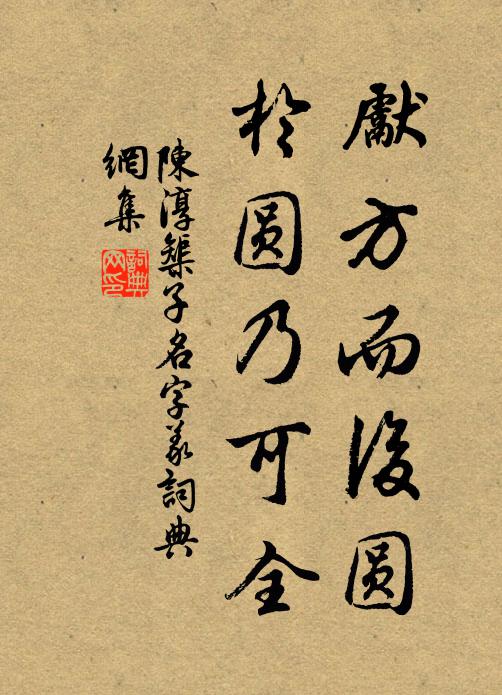 獻方而後圓
於圓乃可全
陳淳榘子名字義詞典
網集
詞典
网印